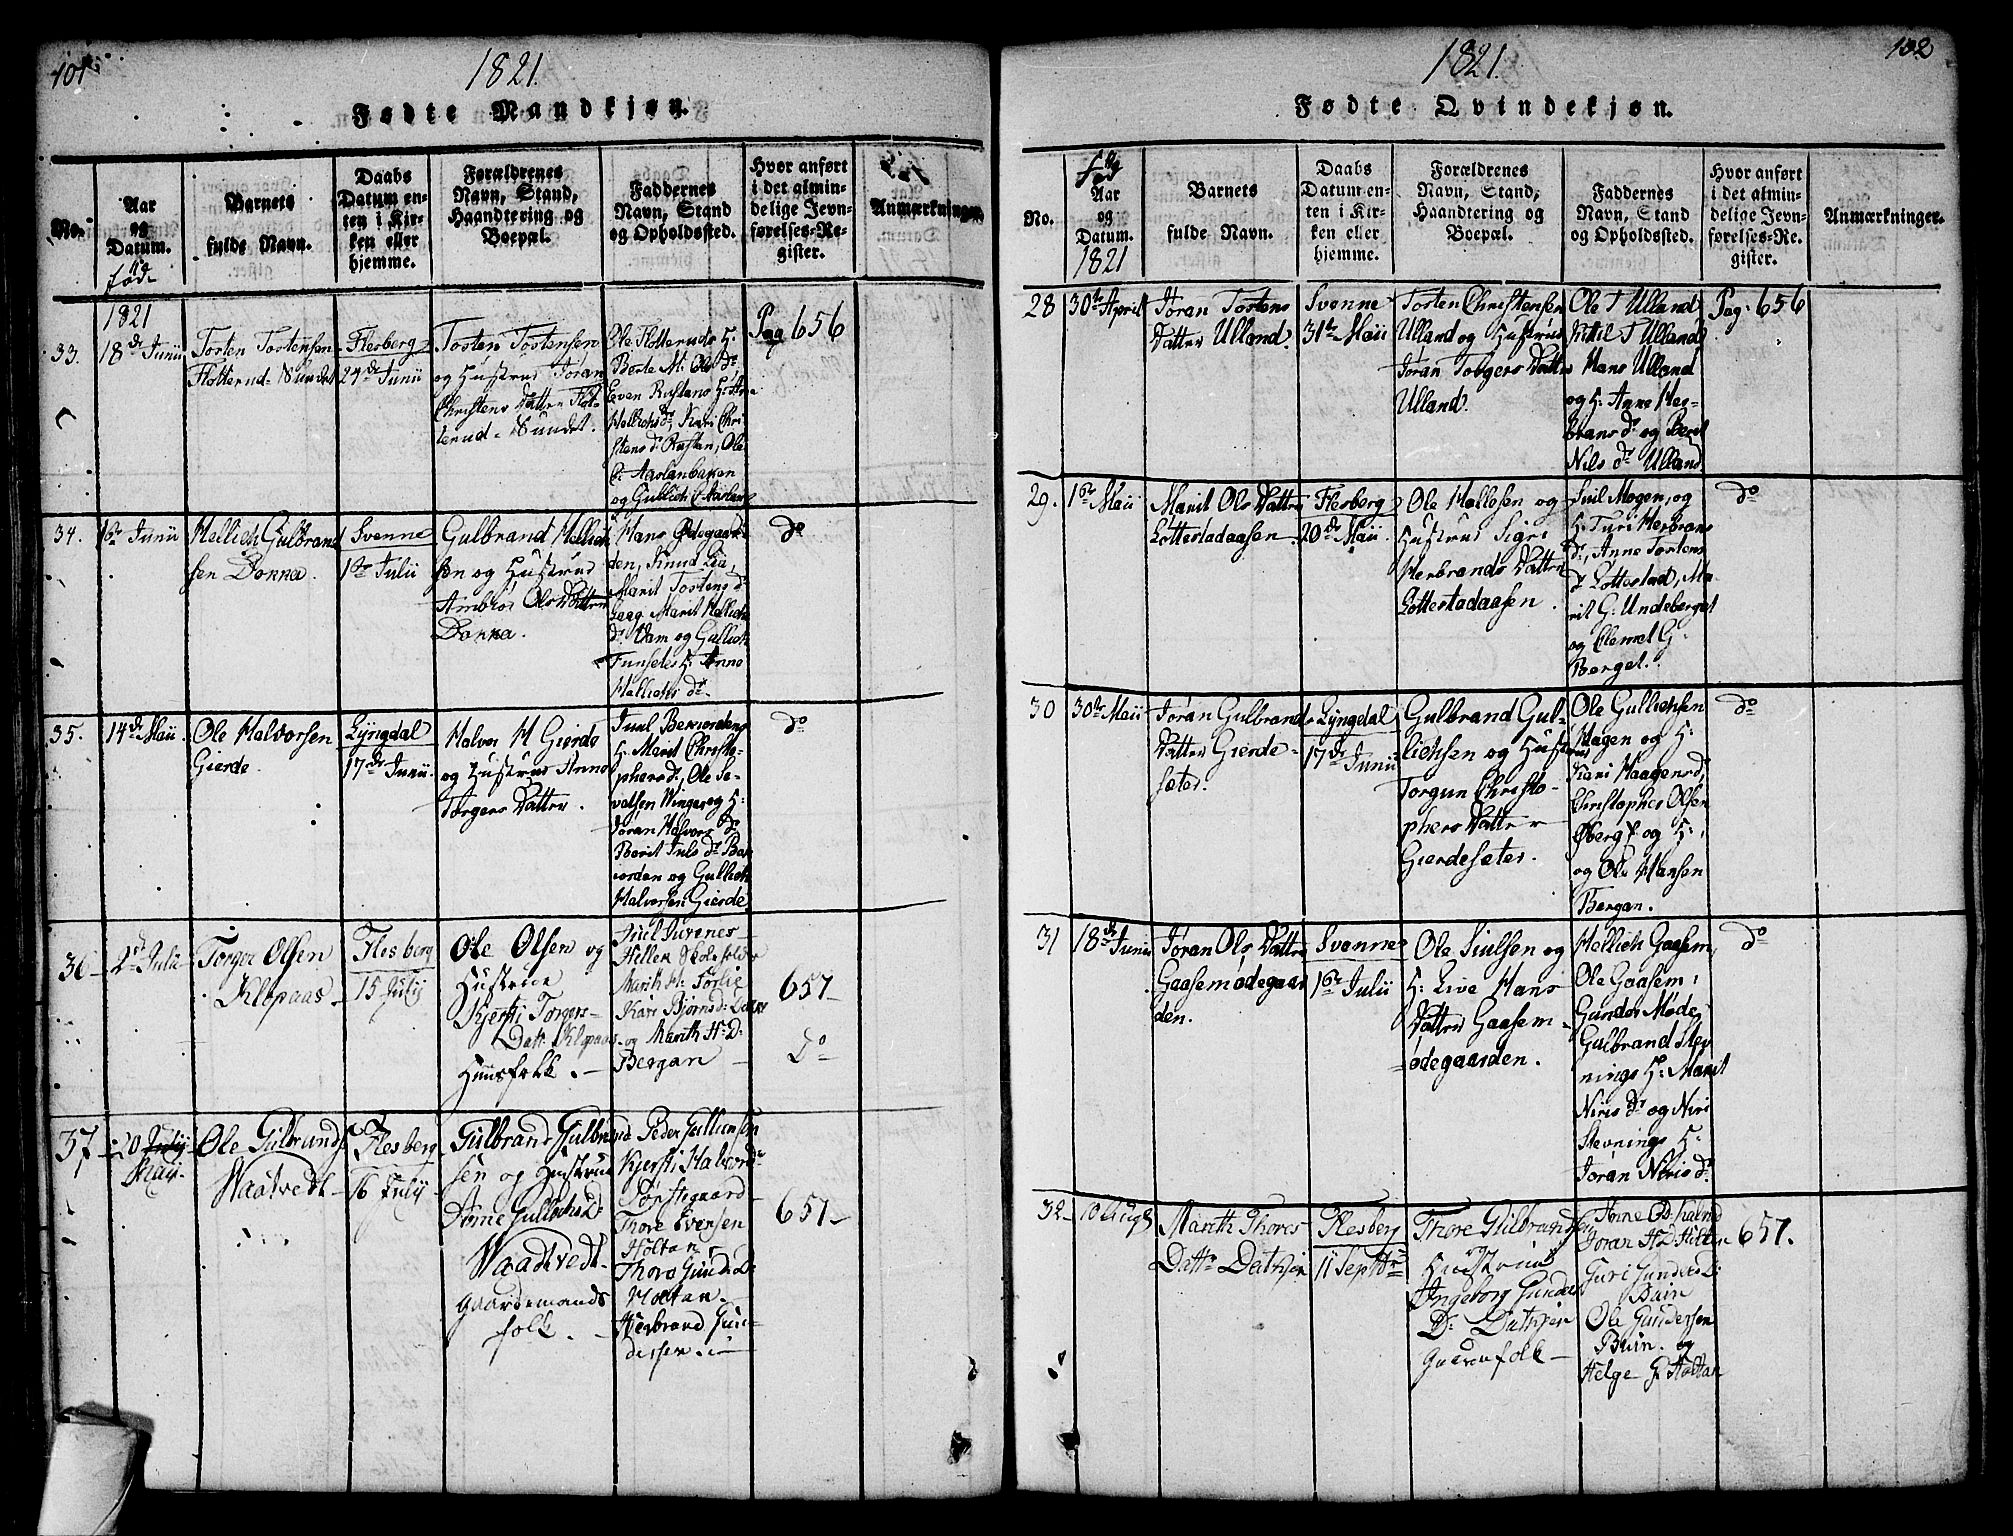 101
1821.
Fødte Mandkjøn.
No.
Aar
og
Datum.
fød
Barnets
fulde Navn.
Daabs
Datum en-
ten i Kir-
ken eller
hjemme.
Forældrenes
Navn, Stand,
Haandtering og
Boepæl.
Faddernes
Navn, Stand
og Opholdssted.
Hvor anført
i det almin-
delige Jevn-
førelses-Re-
gister.
Anmærkninger.
1821
33.
18de Junii
Torsten Torstensen
Flotterud-Sundet
Flesberg
24de Junii
Torsten Torstensen
og Hustrue Jøran
Christens Datter Flot-
terud-Sundet.
Ole Flotteruds H:
Berte M: Ols Dr
Even Rustans H: Ane
Hellichs dr, Kari Chri-
stens dr Rustan, Ole
C: Aaslanbaken
og Gullich C: Aaslan
Pag 656
34.
16de Junii
Hellich Gulbrand
sen Donna.
Svenne
1ste Julii
Gulbrand Hellich
sen og Hustrue
Ambiør Ols Datter
Donna.
Hans Ødegaar-
den, Knud Lia,
Marit Torstens dr
Laag Marit Hellichs
dr Vam og Gullich
Tunsets H: Anne
Hellichs dr
do
35.
14de Maii
Ole Halvorsen
Gierde.
Lyngdal
17de Junii.
Halvor H Gierde
og Hustrue Anne
Torgers Datter.
Juul Beriordens
H: Marit Christo-
phers dr, Ole Se-
valsen Winger og H:
Jøran Halvors Dr
Berit Juls dr Be-
riorden og Gullich
Halvorsen Gierde
do
36
2d Julii
Torger Olsen
Klopaas
Flesberg
15 July
Ole Olsen og
Hustrue
Kjersti Torgers
Datt. Klopaas
Huusfolk.
Juel Juvenes
Heller Skoleholder
Marith H: Førlie
Kari Bjørns D:
og Marith H: D:
Bergan
657
Do
37
20 July
May.
Ole Gulbrands
Waatvedt
Flesberg
16 July
Gulbrand Gulbrand
sen og Hustrue
Anne Gullichs D:
Waatvedt
Gaardmands
folk.
Peder Gullien
Kjersti Halvord
Tønstegaard
Thore Evensen
Holtan
Thora Gund: D:
Holtan.
Herbrand Gun-
dersen
657
102
1821.
Fødte Qvindekjøn.
No.
fød
Aar
og
Datum.
1821
Barnets
fulde Navn.
Daabs
Datum en-
ten i Kir-
ken eller
hjemme.
Forældrenes
Navn, Stand,
Haandtering og
Boepæl.
Faddernes
Navn, Stand
og Opholdssted.
Hvor anført
i det almin-
delige Jevn-
førelses-Re-
gister.
Anmærkninger.
28
30te April
Jøran Tostens
Datter Ulland.
Svenne
31te Maii
Torsten Christensen
Ulland og Hustrue
Jøran Tolgers Datter
Ulland.
Ole T Ulland
Kittil T Ulland
Hans Ulland
og H: Anne Her-
brans dr og Beret
Nils dr Ulland
Pag: 656
29.
16de Maii
Marit Ols Datter
Lottestadaasen.
Flesberg
20de Maii.
Ole Hellesen og
Hustrue Sigri
Herbrands Datter
Lottestadaasen.
Juil Mogen, og
H: Turi Herbrans
dr, Anne Torstens
dr Lottestad, Ma-
rit G: Undeberget
og Clemet G:
Berget.
do
30
30te Maii
Jøran Gulbrands
Datter Gierde-
sæter.
Lyngdal
17de Junii
Gulbrand Gul-
lichsen og Hustrue
Torgun Christo-
phers Datter
Gierdesæter.
Ole Gullichsen
Hagen og H:
Kari Haagensd,
Christopher Olsen
Øberg og H:
og Ole Hansen
Bergan.
do
31
18de Junii
Jøran Ols Datter
Gaasemødegaar
den.
Svenne
1ste Julii
Ole Siulsen og
H: Live Hans
Datter Gaasem-
ødegaarden.
Hellich Gaasem,
Ole Gaasem,
Gunder Møde,
Gulbrand Stev
nings H: Marit
Niris dr og Niri
Stevnings H:
Jøran Niris dr
do
32
10 Aug
Marith Thores
Dattr
Flesberg
11 Septbr
Thore Gulbrandsen
og Hustrue
Ingeborg Gunders
D:
Gaardfolk
Anne
Jøran H: D: Holtan
Guri Gunders D:
Buin
Ole Gundersen
Buin. og
Helge G Holtan
657.